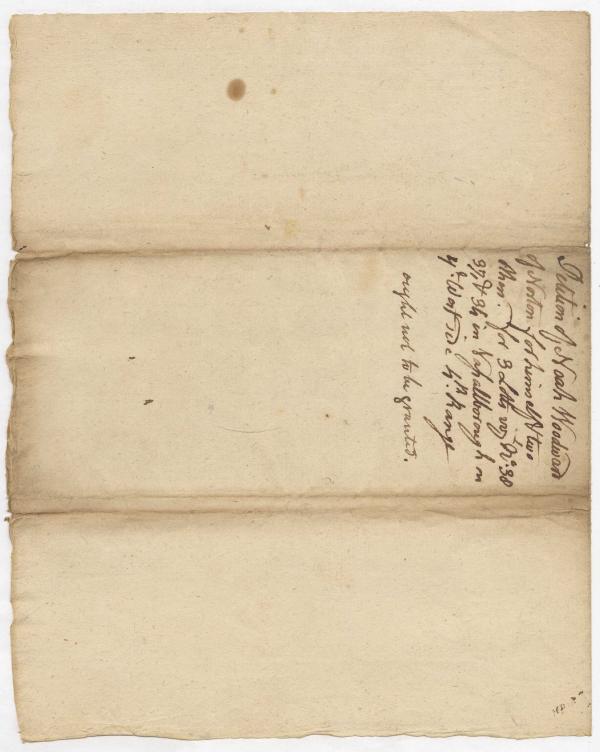 Petition of Noah Woodward
of Norton for himself & two
others. for 3 Lotts viz. No. 38
37, & 34 in Vassallborough on
ye West side 4th Range
ought not to be granted.